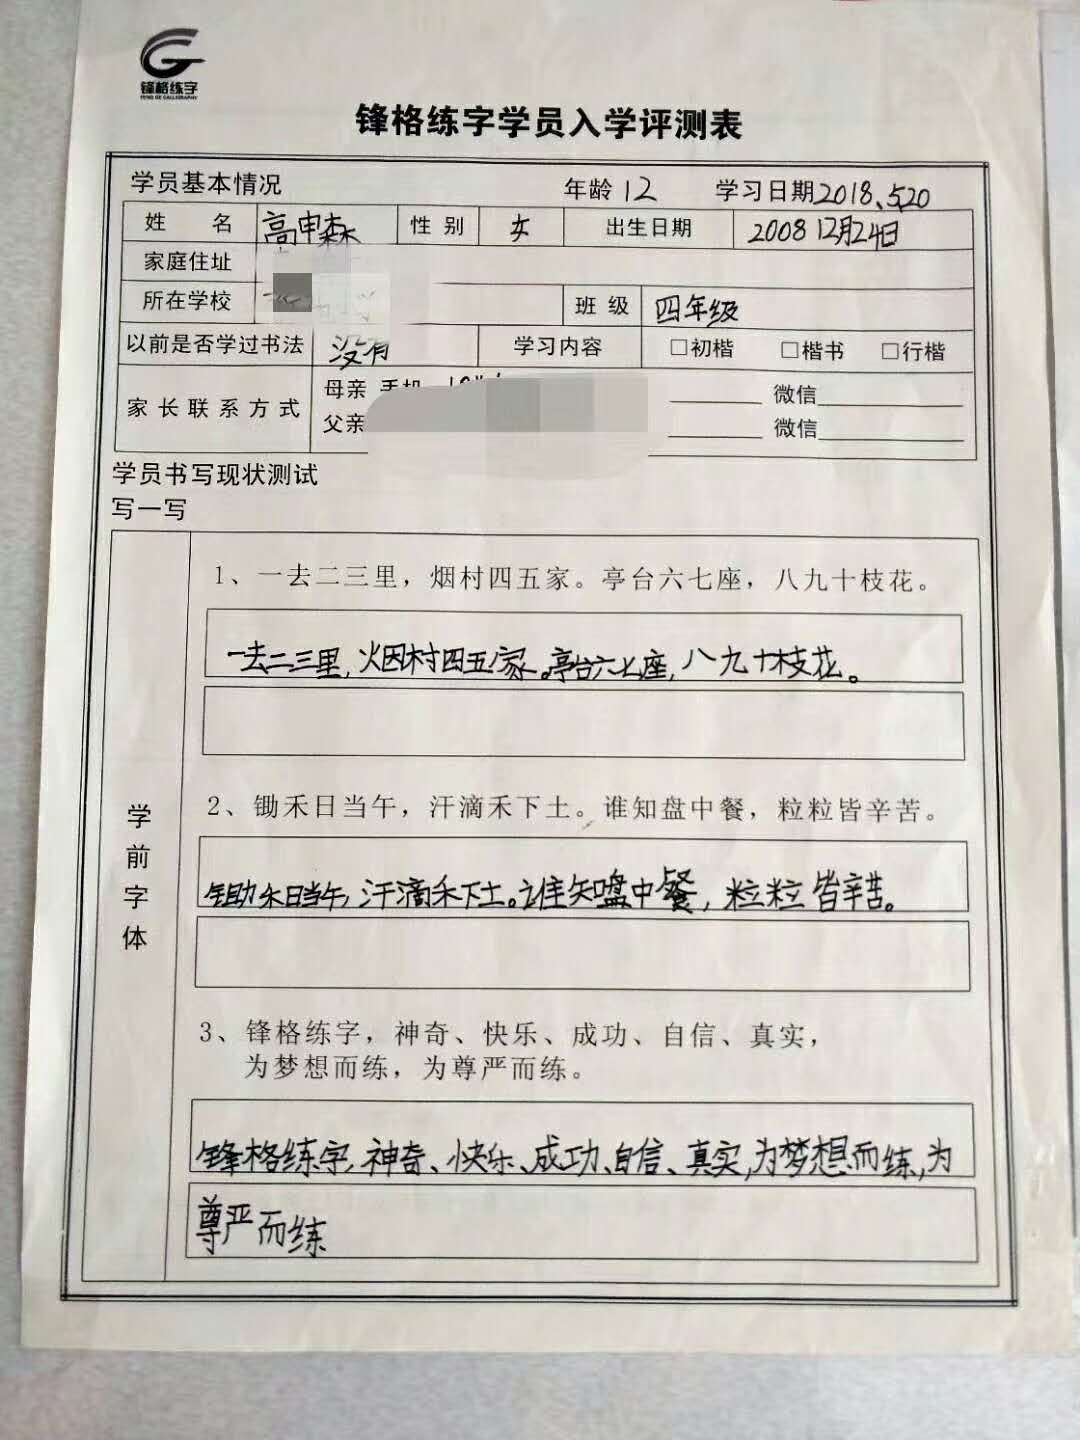 锋格练字
FENG GE CALLIGRAPHY
锋格练字学员入学评测表
学员基本情况 年龄 12 学习日期 2018、5,20
姓 名 高申森 性 别 女 出生日期 2008 12月24日
家庭住址
所在学校 班 级 四年级
以前是否学过书法 没有 学习内容 □初楷 □楷书 □行楷
家长联系方式 母亲 手机 微信
父亲 微信
学员书写现状测试
写一写
学前字体
1、一去二三里，烟村四五家。亭台六七座，八九十枝花。
一去二三里,烟村四五家。亭台六七座,八九十枝花。
2、锄禾日当午，汗滴禾下土。谁知盘中餐，粒粒皆辛苦。
锄禾日当午,汗滴禾下土。谁知盘中餐,粒粒皆辛苦。
3、锋格练字，神奇、快乐、成功、自信、真实，
为梦想而练，为尊严而练。
锋格练字,神奇、快乐、成功、自信、真实,为梦想而练,为
尊严而练